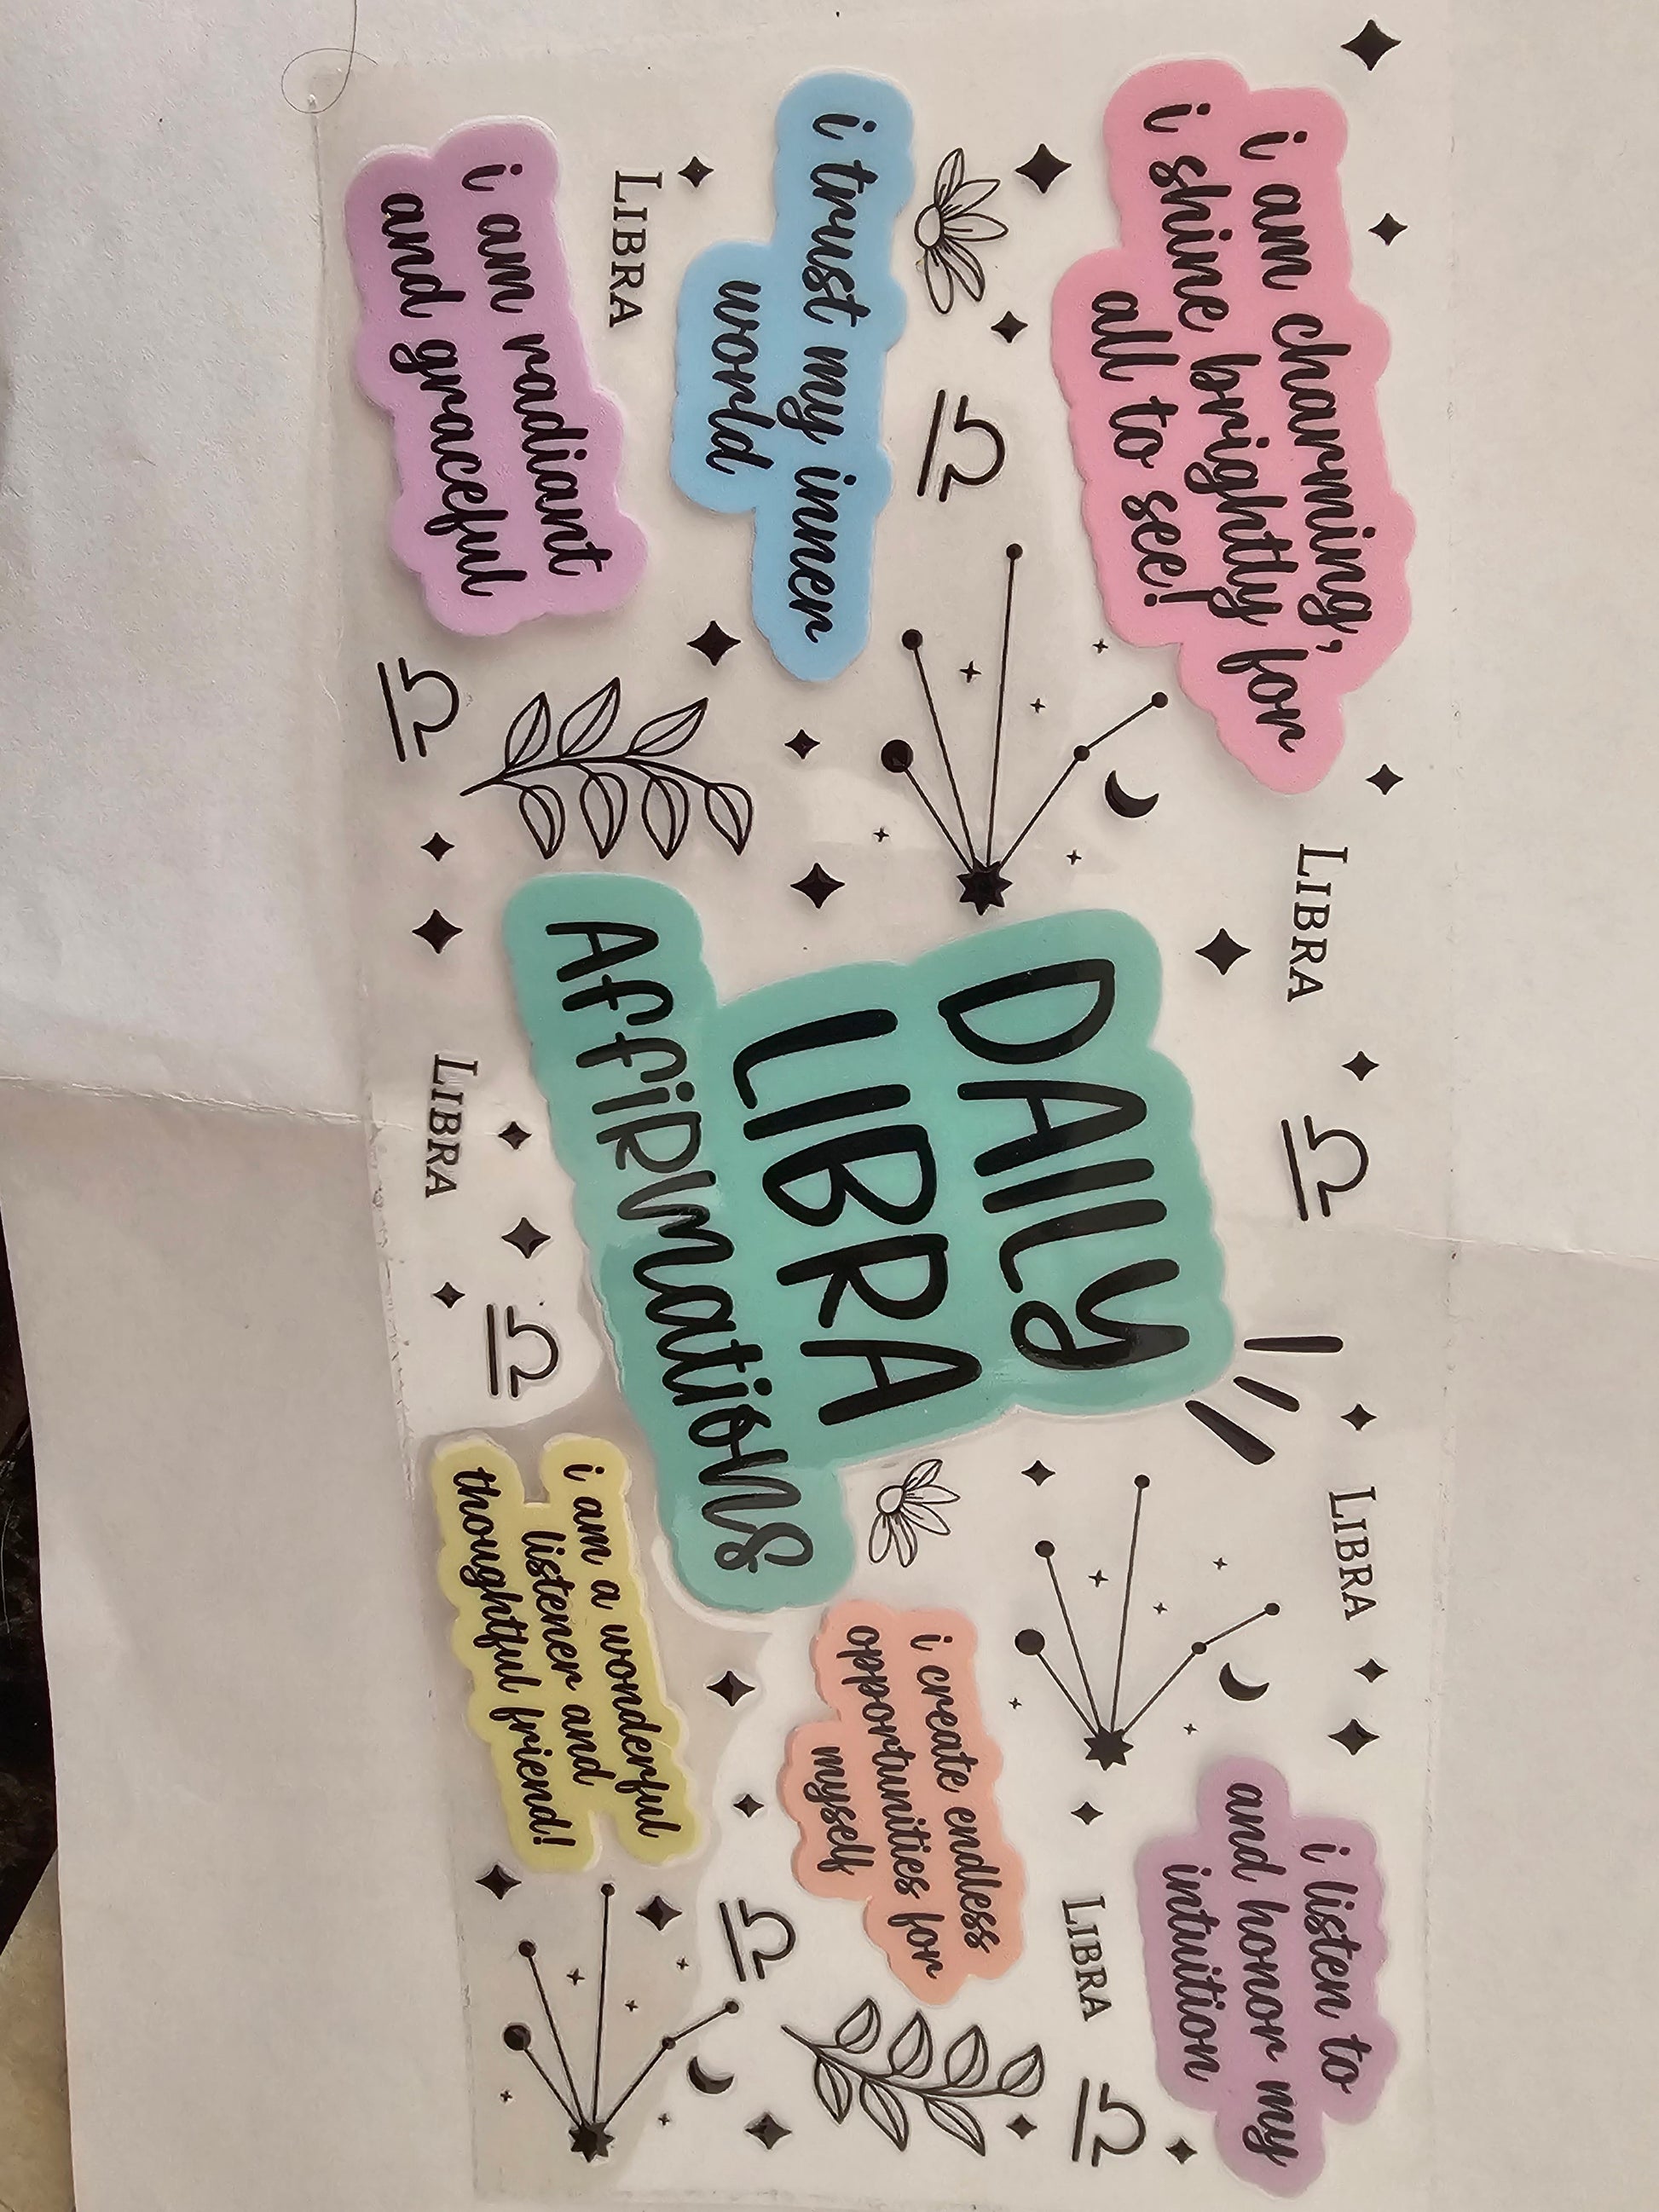 i am charming,
i shine brightly for
all to see!
i trust my inner
world
LIBRA
i am radiant
and graceful
LIBRA
DAILY
LIBRA
AFFIRMATIONS
LIBRA
LIBRA
i listen to
and honor my
intuition
LIBRA
i create endless
opportunities for
myself
i am a wonderful
listener and
thoughtful friend!